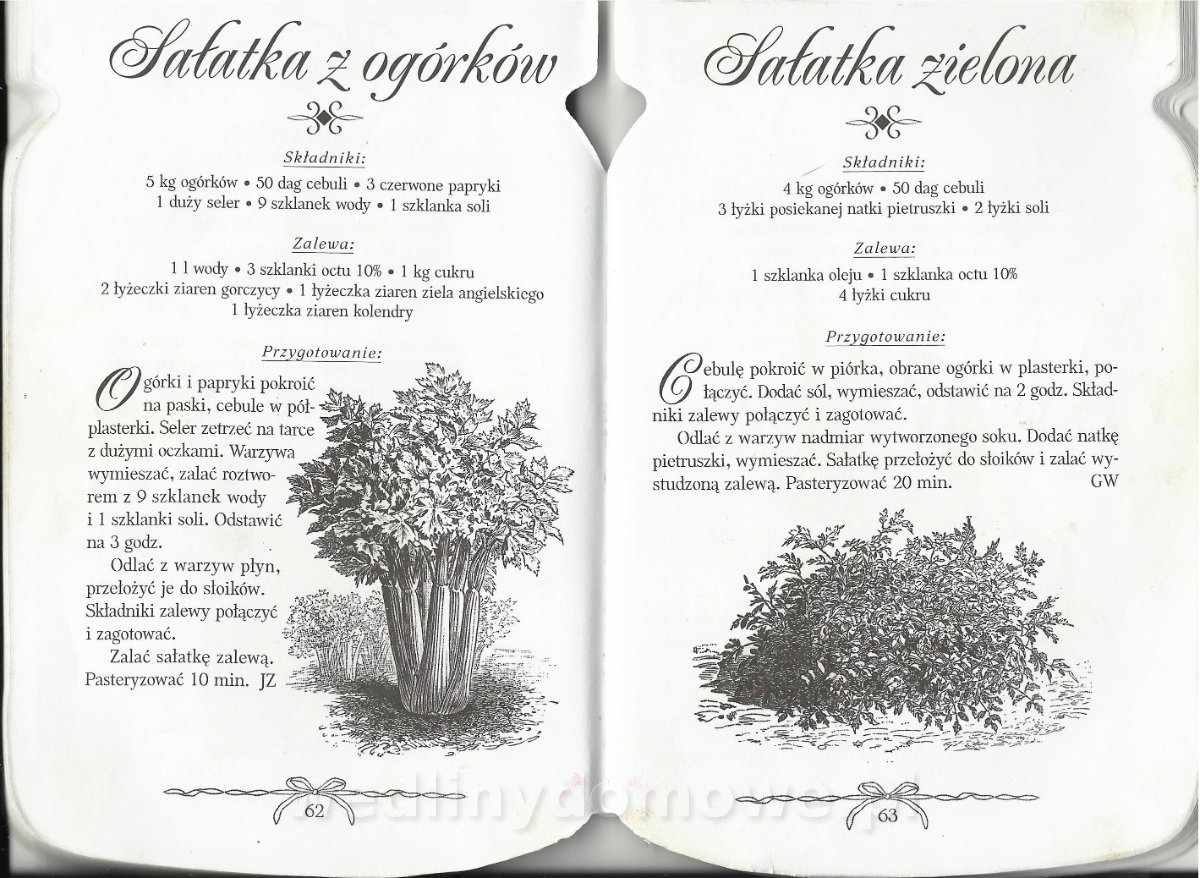 Sałatka z ogórków
Składniki:
5 kg ogórków • 50 dag cebuli • 3 czerwone papryki
1 duży seler • 9 szklanek wody • 1 szklanka soli
Zalewa:
1 l wody • 3 szklanki octu 10% • 1 kg cukru
2 łyżeczki ziaren gorczycy • 1 łyżeczka ziaren ziela angielskiego
1 łyżeczka ziaren kolendry
Przygotowanie:
Ogórki i papryki pokroić
na paski, cebule w pół-
plasterki. Seler zetrzeć na tarce
z dużymi oczkami. Warzywa
wymieszać, zalać roztwo-
rem z 9 szklanek wody
i 1 szklanki soli. Odstawić
na 3 godz.
Odlać z warzyw płyn,
przełożyć je do słoików.
Składniki zalewy połączyć
i zagotować.
Zalać sałatkę zalewą.
Pasteryzować 10 min. JZ
62
Sałatka zielona
Składniki:
4 kg ogórków • 50 dag cebuli
3 łyżki posiekanej natki pietruszki • 2 łyżki soli
Zalewa:
1 szklanka oleju • 1 szklanka octu 10%
4 łyżki cukru
Przygotowanie:
Cebulę pokroić w piórka, obrane ogórki w plasterki, po-
łączyć. Dodać sól, wymieszać, odstawić na 2 godz. Skład-
niki zalewy połączyć i zagotować.
Odlać z warzyw nadmiar wytworzonego soku. Dodać natkę
pietruszki, wymieszać. Sałatkę przełożyć do słoików i zalać wy-
studzoną zalewą. Pasteryzować 20 min. GW
63
wedlinydomowe.pl